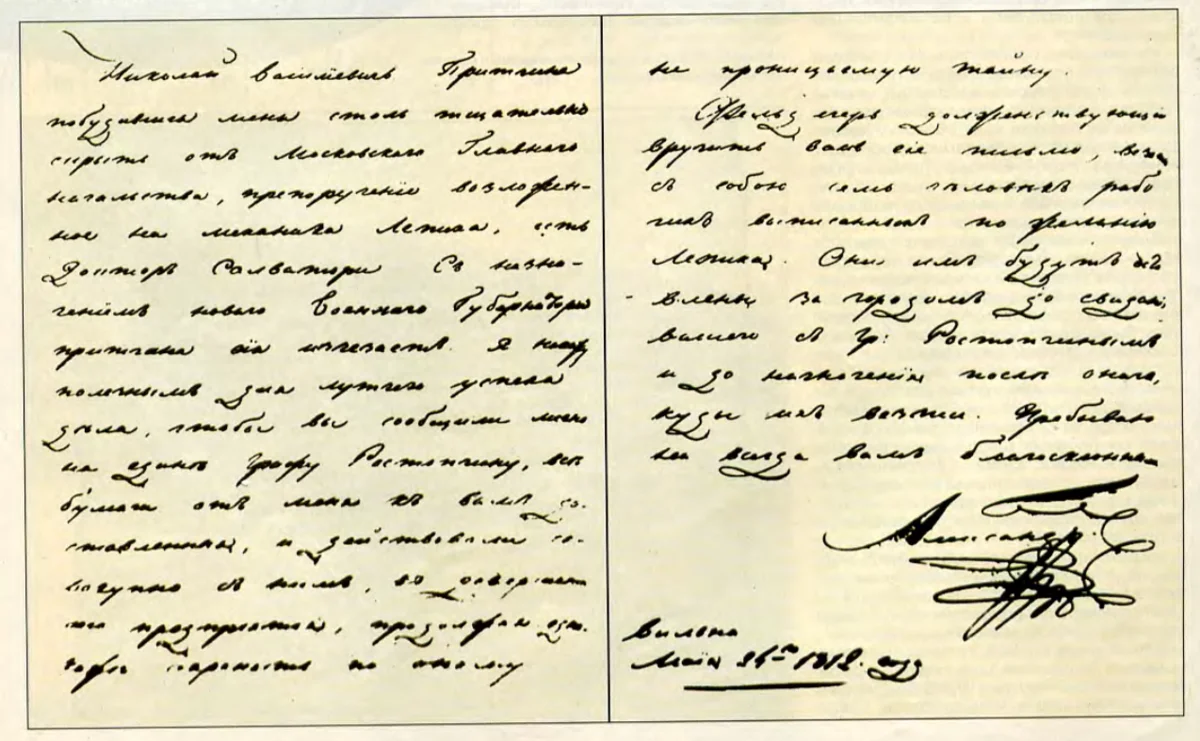 Николай Васильевичь Притчина
побудившая меня столь тщательно
скрыть отъ Московскаго Главнаго
начальства, препорученіе возложен-
ное на механика Леппиха, есть
Докторъ Салватори Съ назна-
ченіемъ новаго Военнаго Губернатора
притчина сія изчезаетъ. Я нахожу
полезнымъ для лутчаго успеха
дѣла, чтобы вы сообщили
на единѣ Графу Ростопчину, всѣ
бумаги отъ меня къ вамъ до-
ставленныя, и дѣйствовали со-
вокупно съ нимъ, въ
предпріятія, продолжая одна-
кожъ сохранять по оному
не проницаемую тайну.
Фельдъ егерь долженствующій
вручить вамъ сіе письмо,
съ собою семь рабо
чихъ выписанныхъ по желанію
Леппиха. Они имъ будутъ
влены за городомъ до свиданія
вашего съ Гр: Ростопчинымъ
и до назначенія послѣ онаго,
куды ихъ везти. Пребываю
на всегда вамъ благосклонный
Александръ
Вильна
Маія 24го 1812. года